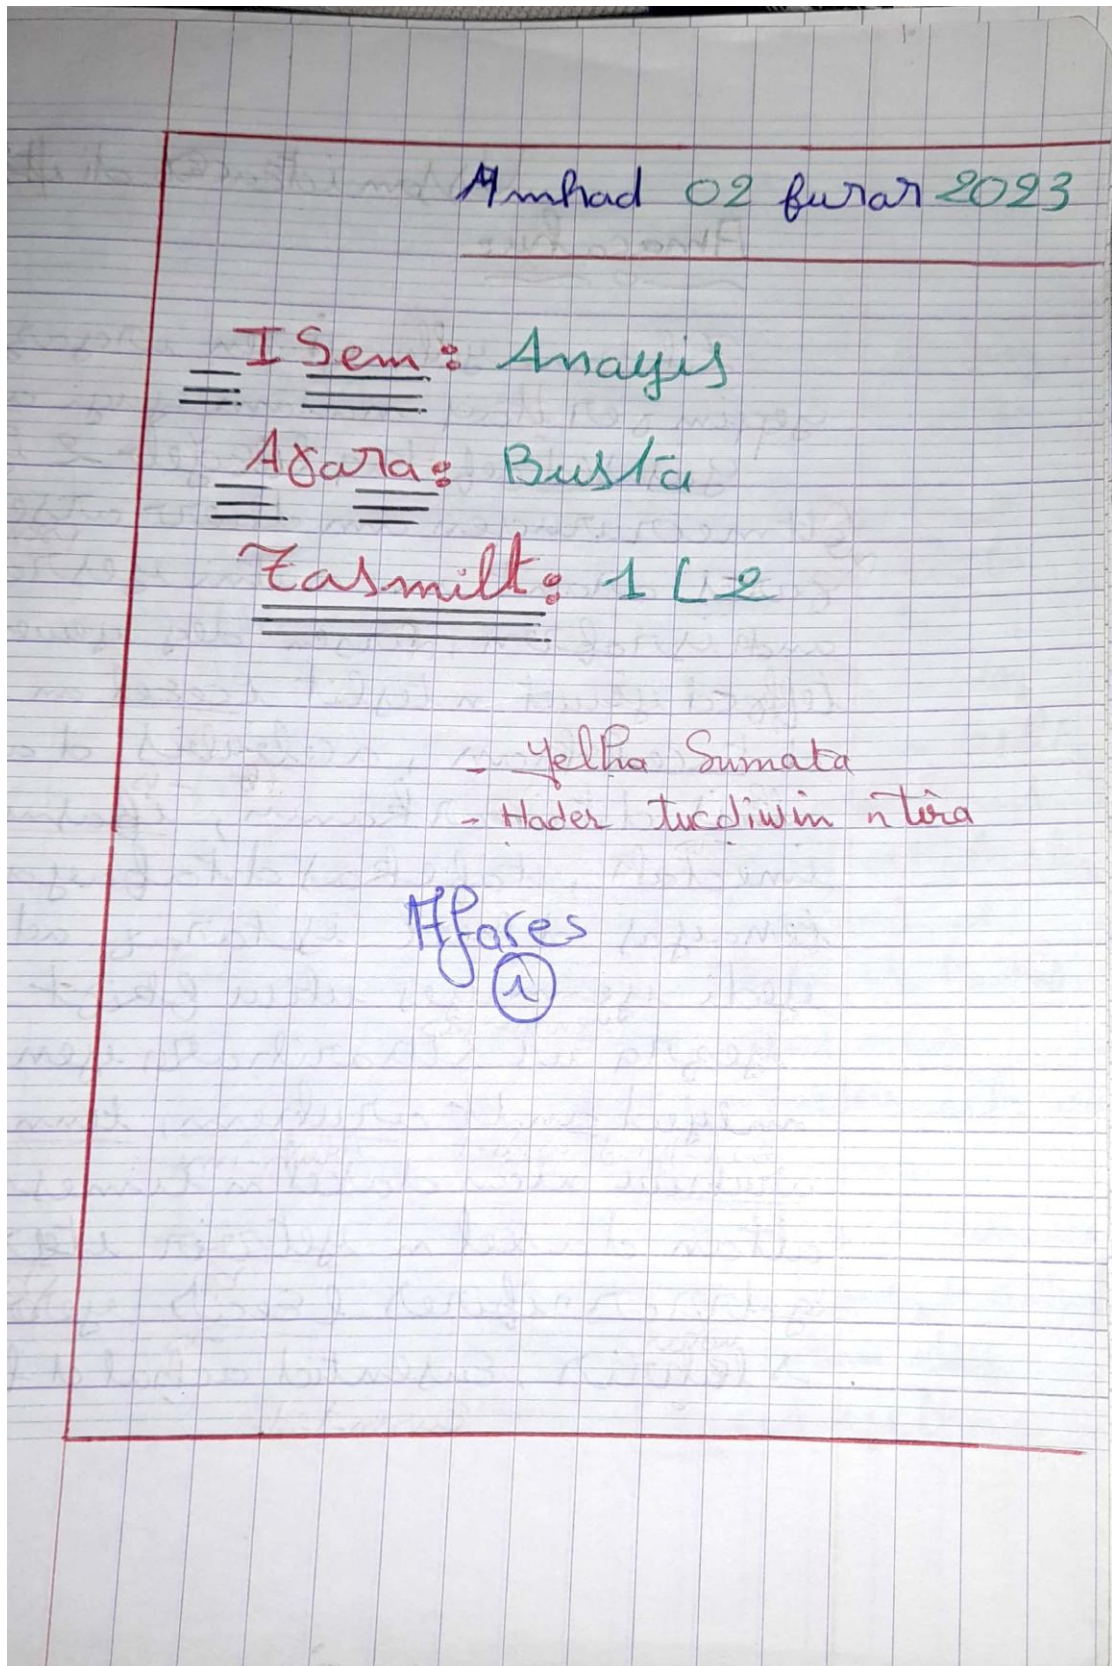 Amhad 02 furar 2023
ISem: Anayis
Aɣara: Busta
Tasmilt: 1 L 2
- yelha Sumata
- Hader tucdiwin n tira
Afares
1